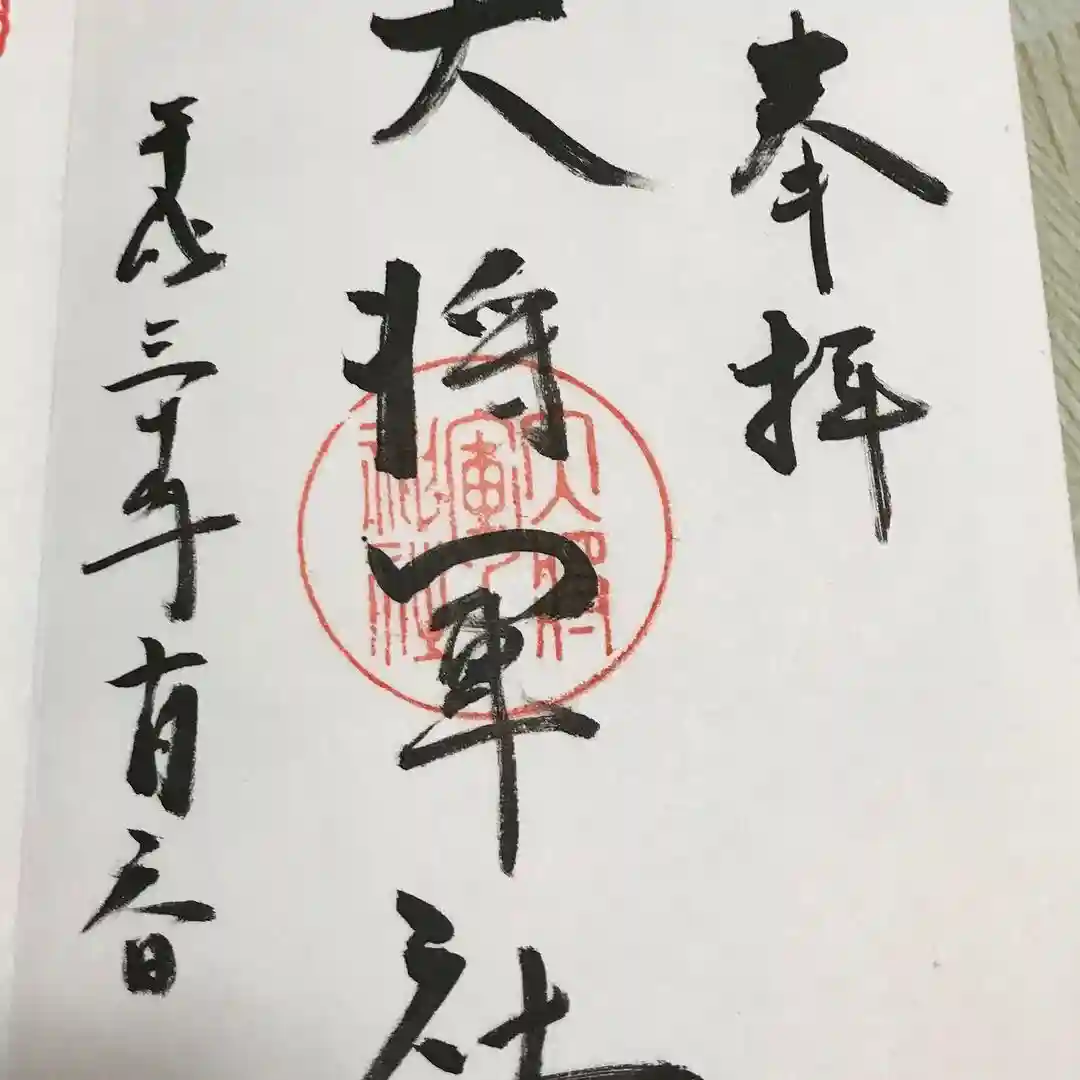 奉拝
大将軍社
平成三十年十月日
大將
軍
神社